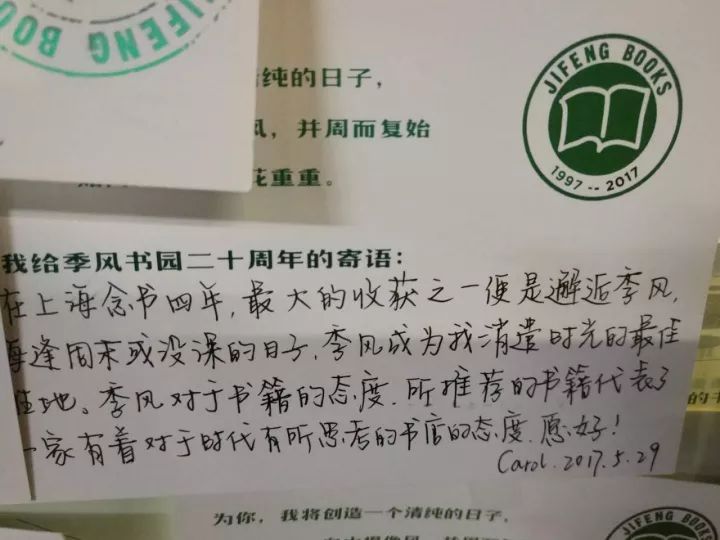 JIFENG BOO
纯的日子，
风，并周而复始
花重重。
JIFENG BOOKS
1997 -- 2017
我给季风书园二十周年的寄语：
在上海念书四年，最大的收获之一便是邂逅季风，
每逢周末或没课的日子，季风成为我消遣时光的最佳
佳地。季风对于书籍的态度、所推荐的书籍代表了
一家有着对于时代有所思考的书店的态度，愿好！
Carol. 2017.5.29
的书
为你，我将创造一个清纯的日子，
JIFENG BOOKS